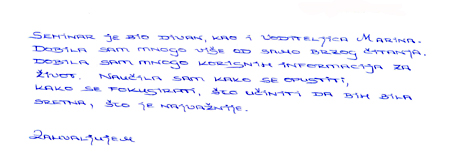 SEMINAR JE BIO DIVAN, KAO I VODITELJICA MARINA.
DOBILA SAM MNOGO VIŠE OD SAMO BRZOG ČITANJA.
DOBILA SAM MNOGO KORISNIH INFORMACIJA ZA
ŽIVOT. NAUČILA SAM KAKO SE OPUSTITI,
KAKO SE FOKUSIRATI, ŠTO UČINITI DA BIH BILA
SRETNA, ŠTO JE NAJVAŽNIJE.
ZAHVALJUJEM